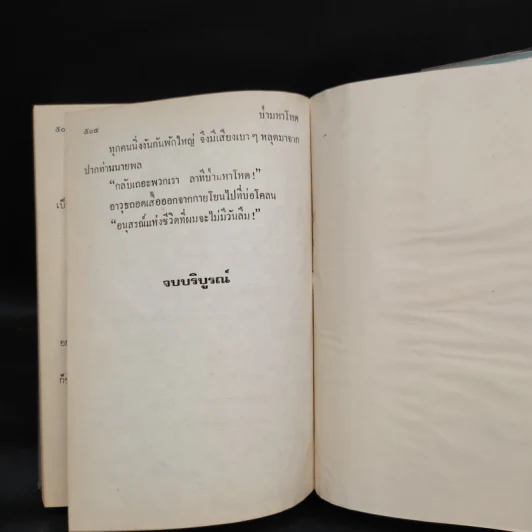 ๕๐๔
ป่ามหาโหด
ทุกคนนิ่งงันกันพักใหญ่ จึงมีเสียงเบา ๆ หลุดมาจาก
ปากท่านนายพล
“กลับเถอะพวกเรา ลาทีป่ามหาโหด!”
อาวุธถอดเสื้อออกจากกายโยนไปที่บ่อโคลน
“อนุสรณ์แห่งชีวิตที่ผมจะไม่มีวันลืม!”
จบบริบูรณ์